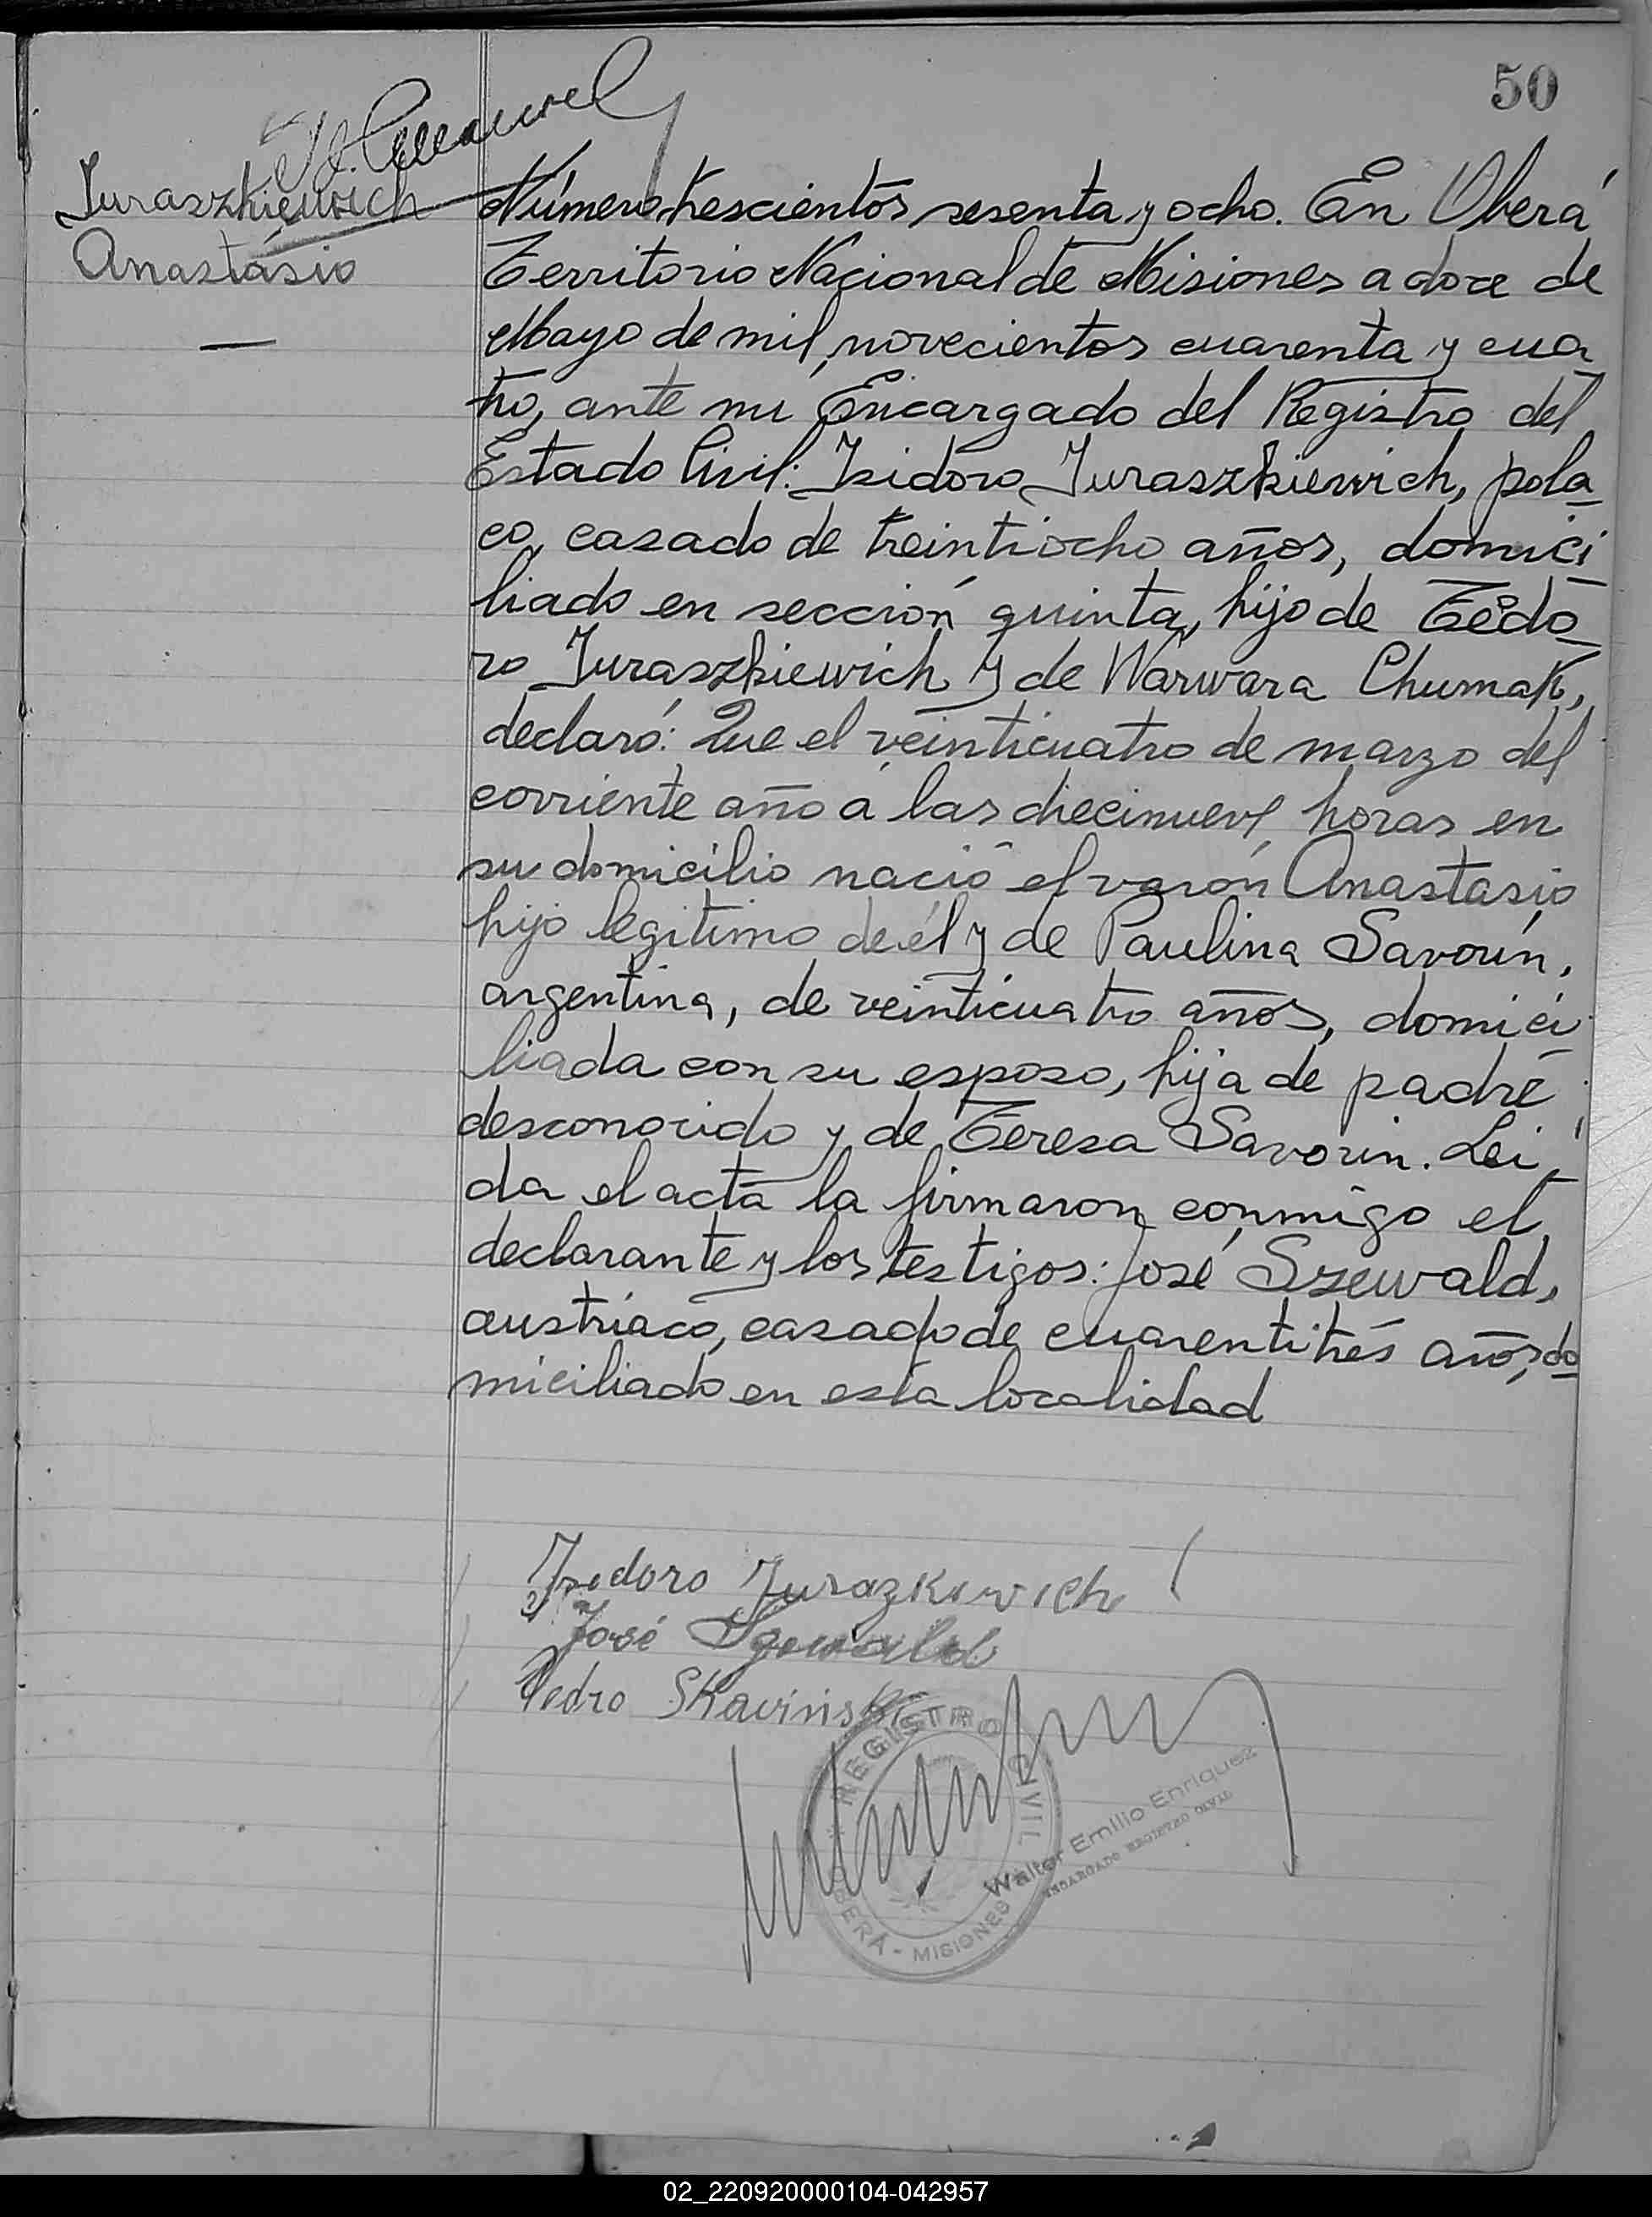 50
Juraszkiewich
Anastasio
Número trescientos sesenta y ocho. En Oberá
Territorio Nacional de Misiones a doce de
Mayo de mil novecientos cuarenta y cua
tro, ante mi Encargado del Registro del
Estado Civil: Isidoro Juraszkiewich, pola
co, casado de treintiocho años, domici
liado en sección quinta, hijo de Teodo
ro Juraszkiewich y de Warwara Chumak,
declaró: Que el veinticuatro de marzo del
corriente año a las diecinueve horas en
su domicilio nació el varón Anastasio
hijo legitimo de él y de Paulina Savorin,
argentina, de veinticuatro años, domici
liada con su esposo, hija de padre
desconocido y de Teresa Savorin. Leí
da el acta la firmaron conmigo el
declarante y los testigos: José Szewald,
austríaco, casado de cuarentitrés años, do
miciliado en esta localidad
Isidoro Jurazkiwich
José Szewald
Pedro Skavinski
REGISTRO CIVIL
OBERÁ - MISIONES
Walter Emilio Enriquez
ENCARGADO REGISTRO CIVIL
02_220920000104-042957